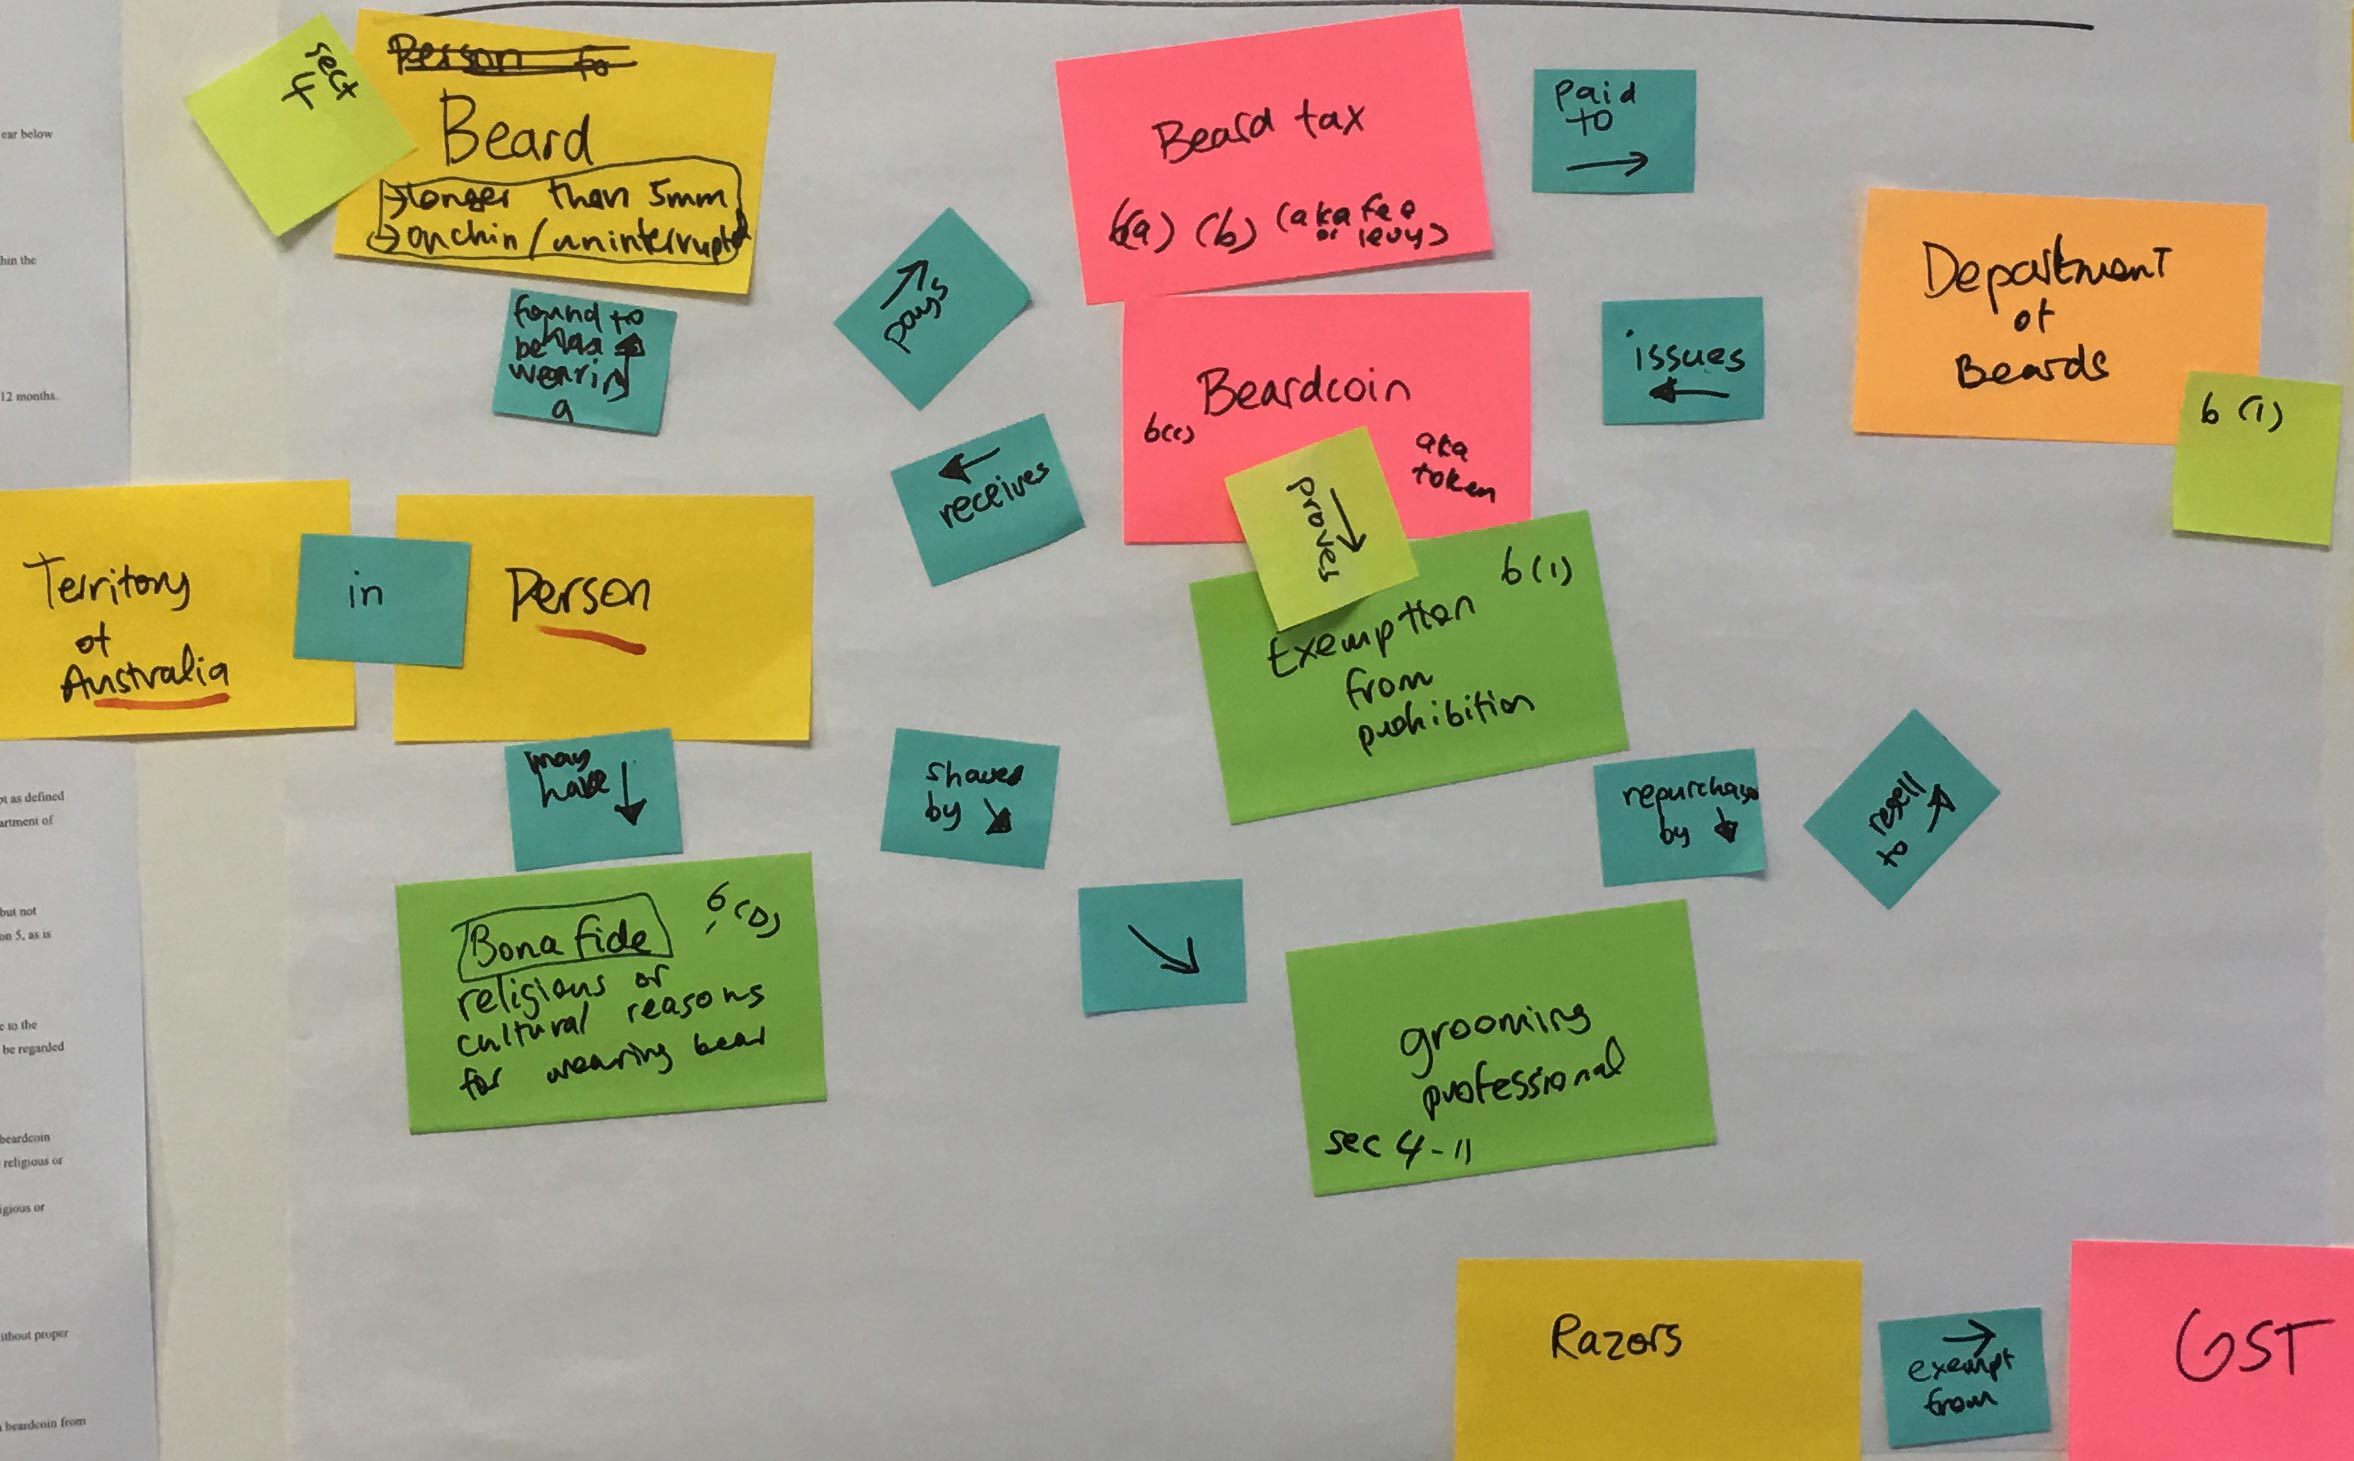 ear below
hin the
12 months.
pt as defined
artment of
but not
on 5, as is
e to the
be regarded
beardcoin
religious or
igious or
ithout proper
beardcoin from
sect
4
Beard
longer than 5mm
on chin / uninterrupted
found to
be
wearing
a
pays
receives
Beard tax
6(a) (b) (aka fee
or levy)
paid
to
Beardcoin
6(c)
aka
token
issues
Department
of
Beards
6 (1)
proves
Territory
of
Australia
in
Person
6(1)
Exemption
from
prohibition
may
have
shaved
by
repurchase
by
resell
to
Bona fide
6(D)
religious or
cultural reasons
for wearing bear
grooming
professional
sec 4-11
Razors
exempt
from
GST